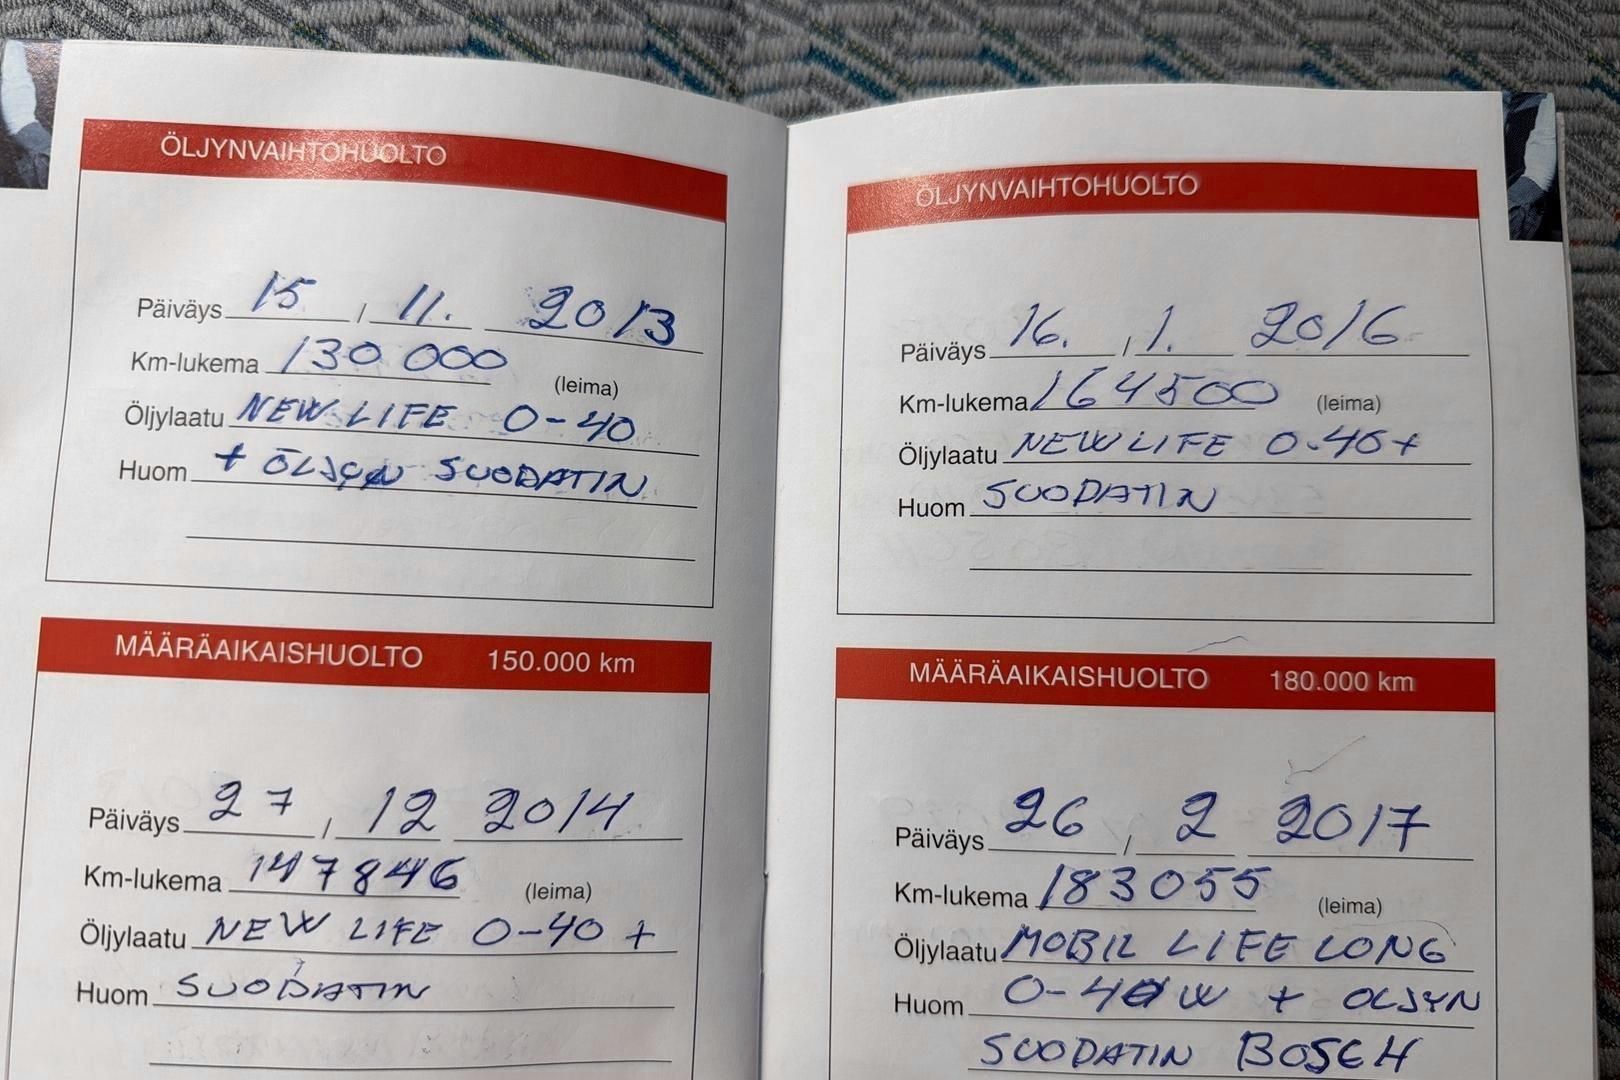 ÖLJYNVAIHTOHUOLTO
Päiväys 15 / 11. 2013
Km-lukema 130 000 (leima)
Öljylaatu NEW LIFE 0-40
Huom + ÖLJYN SUODATIN
MÄÄRÄAIKAISHUOLTO 150.000 km
Päiväys 27 / 12 2014
Km-lukema 147846 (leima)
Öljylaatu NEW LIFE 0-40 +
Huom SUODATIN
ÖLJYNVAIHTOHUOLTO
Päiväys 16. / 1. 2016
Km-lukema 164500 (leima)
Öljylaatu NEW LIFE 0-40+
Huom SUODATIN
MÄÄRÄAIKAISHUOLTO 180.000 km
Päiväys 26 / 2 2017
Km-lukema 183055 (leima)
Öljylaatu MOBIL LIFE LONG
Huom 0-40 W + OLJYN
SUODATIN BOSCH